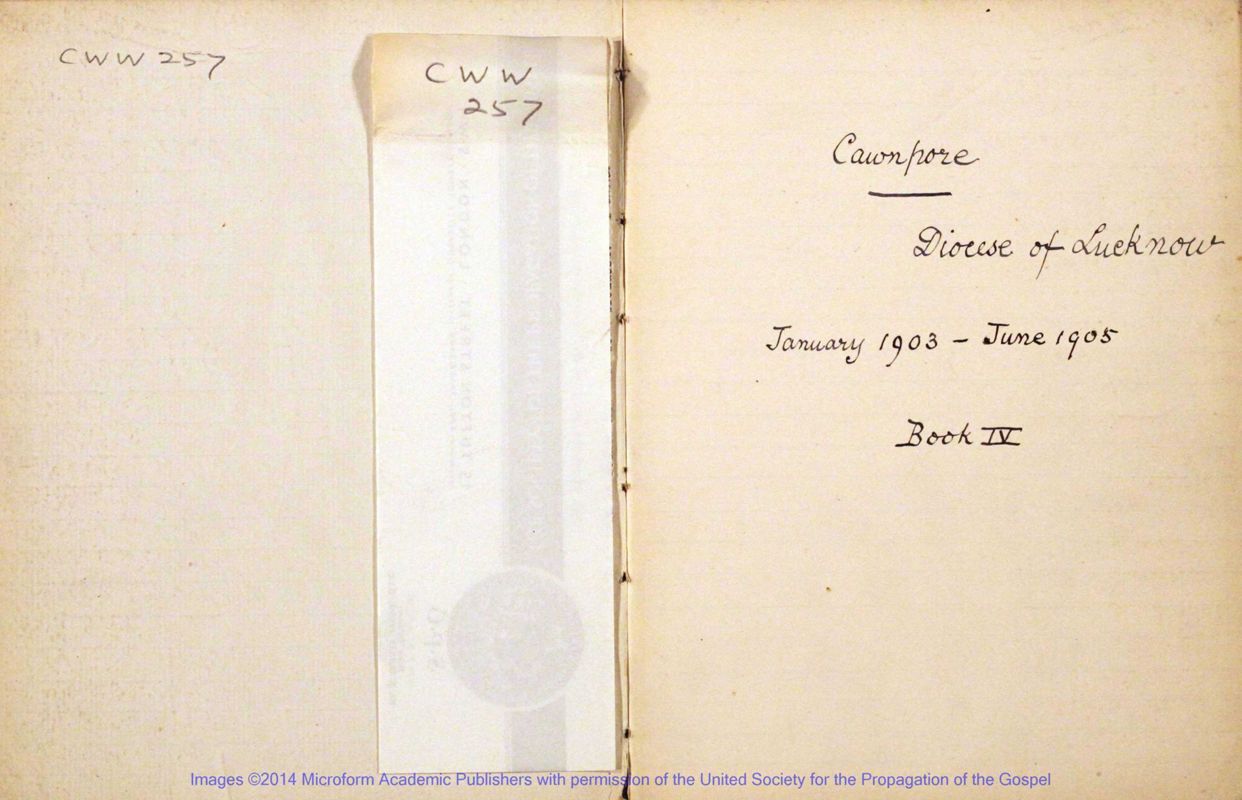 CWW 257
CWW
257
Cawnpore
Diocese of Lucknow
January 1903 - June 1905
Book IV
Images ©2014 Microform Academic Publishers with permission of the United Society for the Propagation of the Gospel